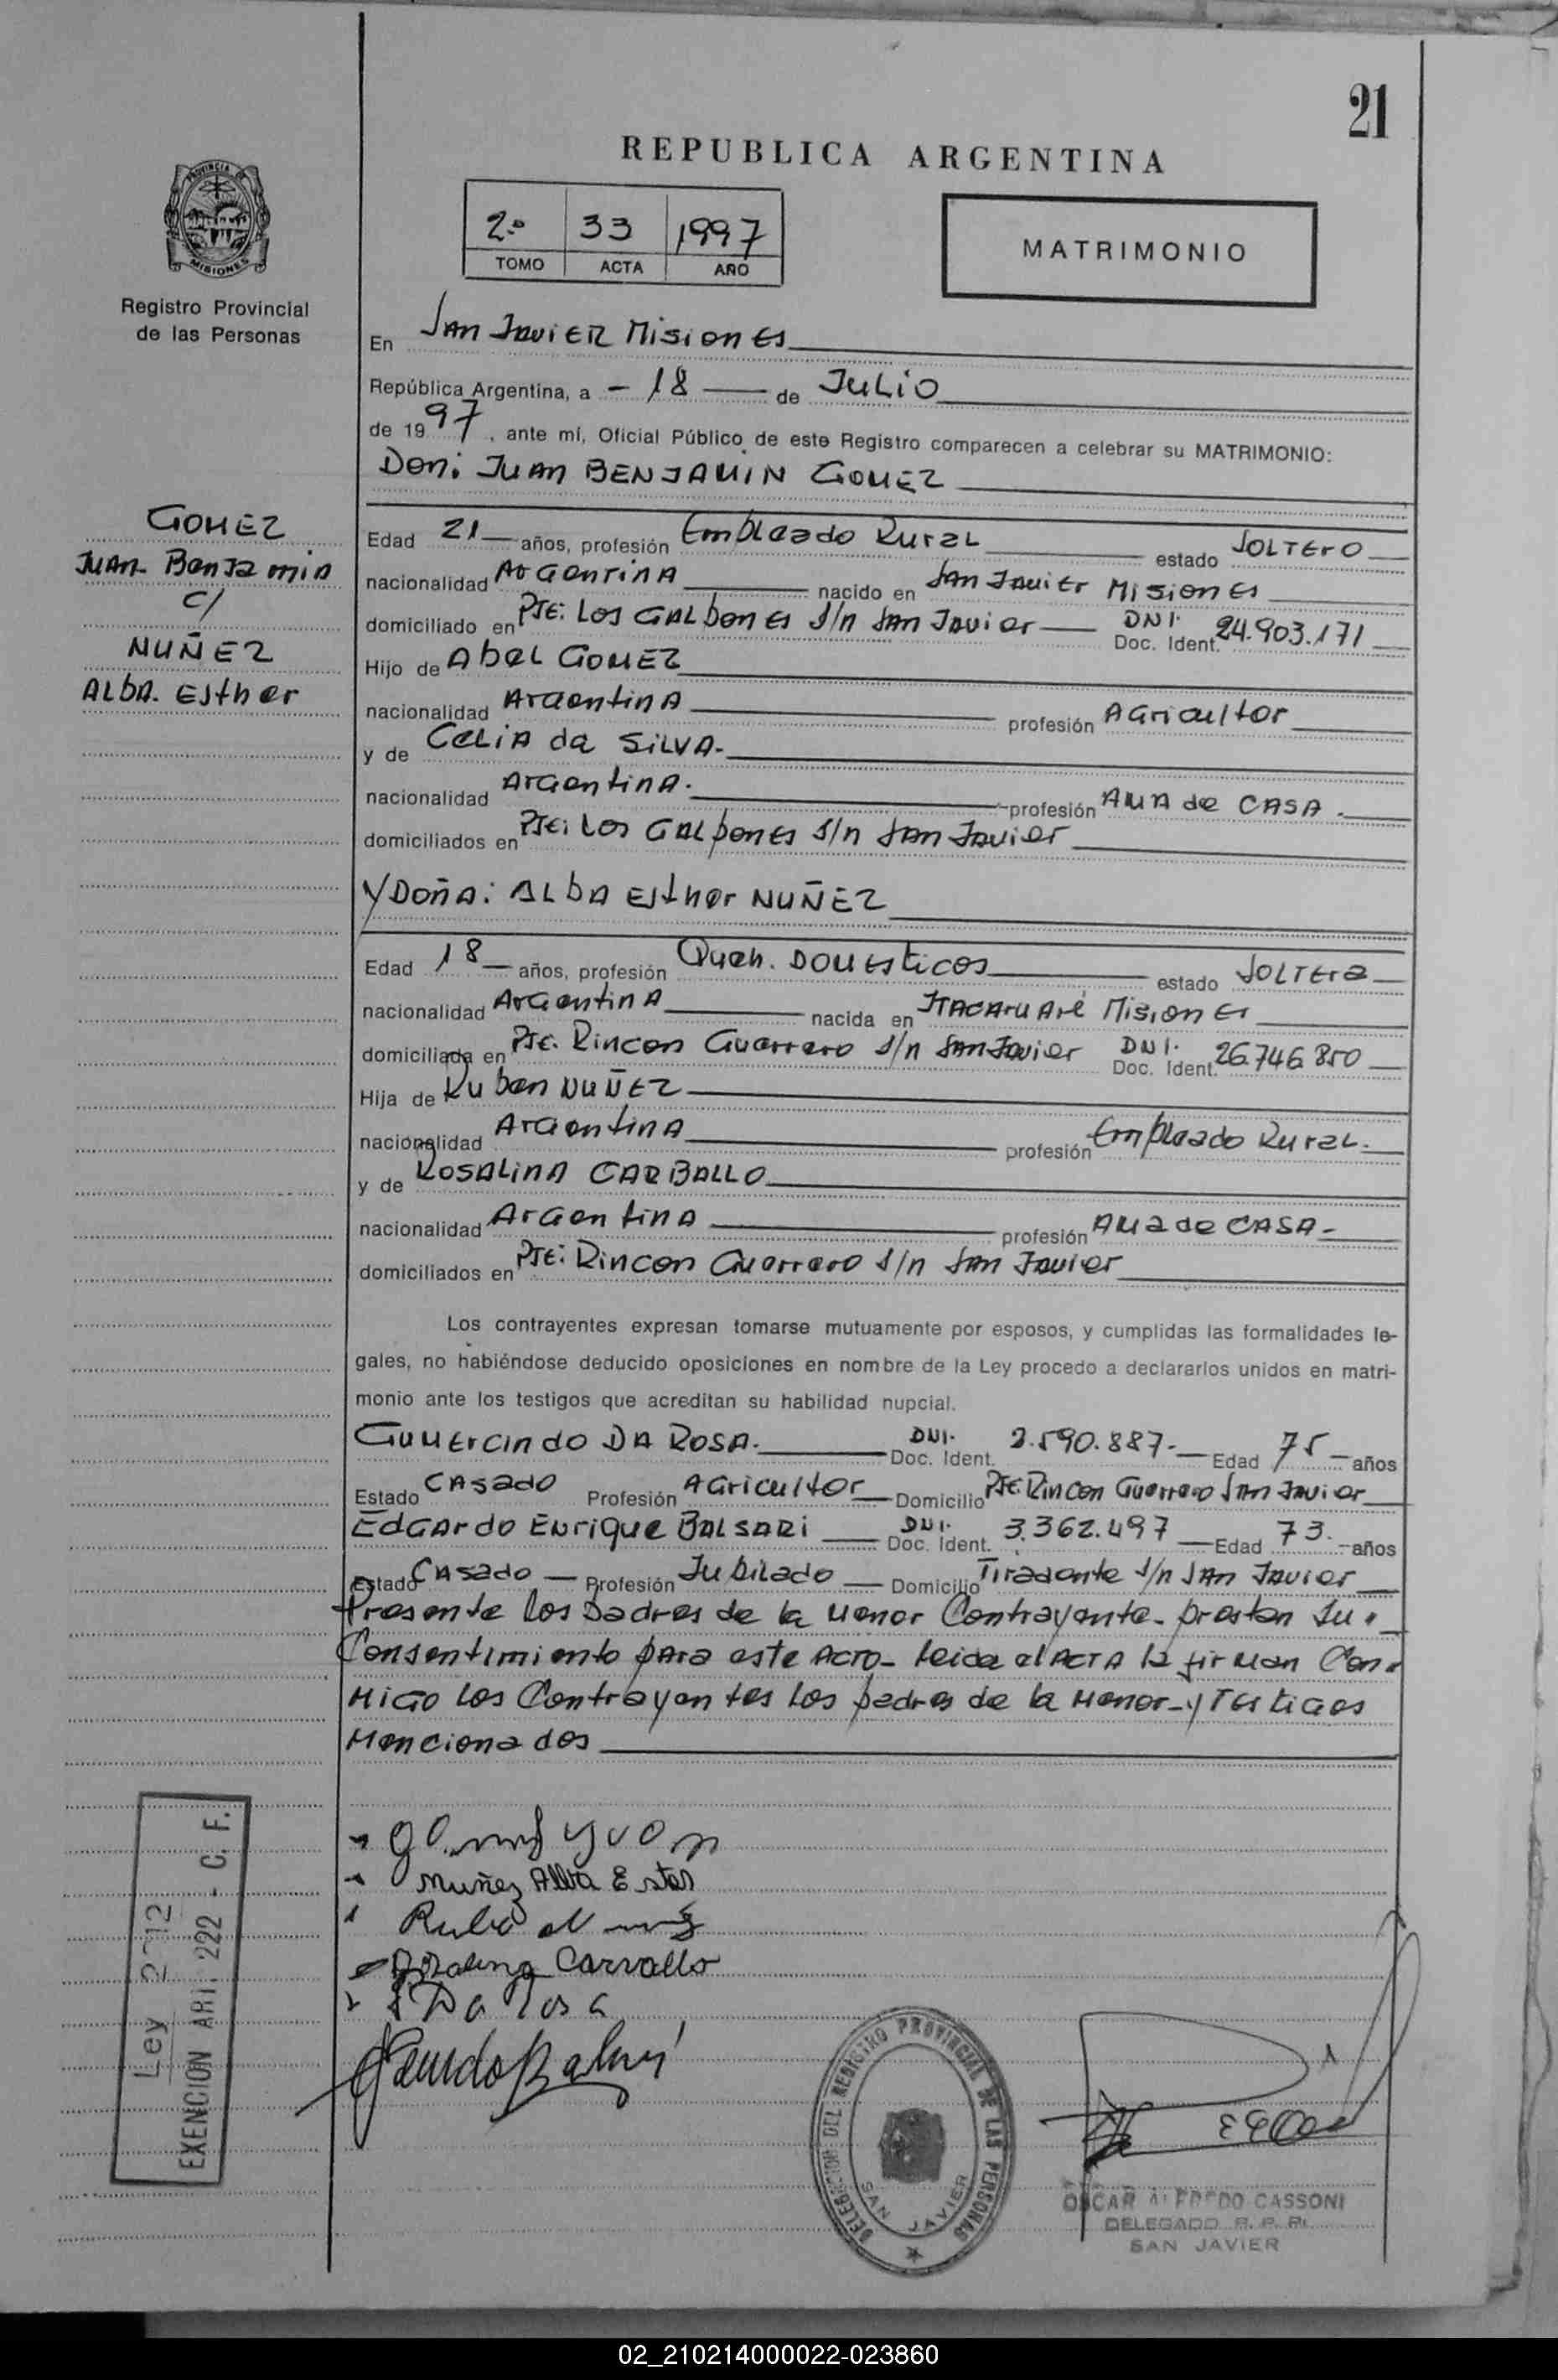 21
REPUBLICA ARGENTINA
2º 33 1997
TOMO ACTA AÑO
MATRIMONIO
PROVINCIA DE
MISIONES
Registro Provincial
de las Personas
En San Javier Misiones
República Argentina, a - 18 — de Julio
de 1997, ante mí, Oficial Público de este Registro comparecen a celebrar su MATRIMONIO:
Don: Juan BENJAMIN GOMEZ
GOMEZ
Juan Benjamin
c/
NUÑEZ
ALbA. Esther
Edad 21 — años, profesión Empleado Rural estado SOLTErO
nacionalidad ArGentinA nacido en San Javier Misiones
domiciliado en Pje: Los GALpones s/n San Javier — DNI. Doc. Ident. 24.903.171
Hijo de Abel GOMEZ
nacionalidad ArGentinA profesión AGricultor
y de CeLiA da SiLVA.
nacionalidad ArGentinA. profesión AMA de CASA.
domiciliados en Pje: Los GALpones s/n San Javier
Y DoñA: ALbA Esther NUÑEZ
Edad 18 — años, profesión Queh. DOMEsticos estado SOLTEra
nacionalidad ArGentinA nacida en ITACAruAré Misiones
domiciliada en Pje. Rincon Guerrero s/n San Javier DNI. Doc. Ident. 26.746.850
Hija de Ruben NUÑEZ
nacionalidad ArGentinA profesión Empleado Rural.
y de ROSALinA CARBALLO
nacionalidad ArGentinA profesión AMa de CASA-
domiciliados en Pje: Rincon Guerrero s/n San Javier
Los contrayentes expresan tomarse mutuamente por esposos, y cumplidas las formalidades le-
gales, no habiéndose deducido oposiciones en nombre de la Ley procedo a declararlos unidos en matri-
monio ante los testigos que acreditan su habilidad nupcial.
GuMErcindo DA ROSA. DNI. Doc. Ident. 2.590.887.- Edad 75 - años
Estado CAsado Profesión AGricultor Domicilio Pje. Rincon Guerrero San Javier
EdGArdo Enrique BALSARI DNI. Doc. Ident. 3.362.497 Edad 73. - años
Estado CAsado — Profesión Jubilado — Domicilio Tiradente s/n San Javier
Presente los padres de la Menor Contrayente- prestan su
Consentimiento para este ACTO- leida el ACTA la firman Con-
MiGo los Contrayentes los padres de la Menor- y TestiGos
Mencionados
Nuñez Alba Ester
Carvallo
Da Rosa
Ley 2712
EXENCION ART. 222 - C. F.
DELEGACION DEL REGISTRO PROVINCIAL DE LAS PERSONAS
SAN JAVIER
OSCAR ALFREDO CASSONI
DELEGADO R. P. P.
SAN JAVIER
02_210214000022-023860